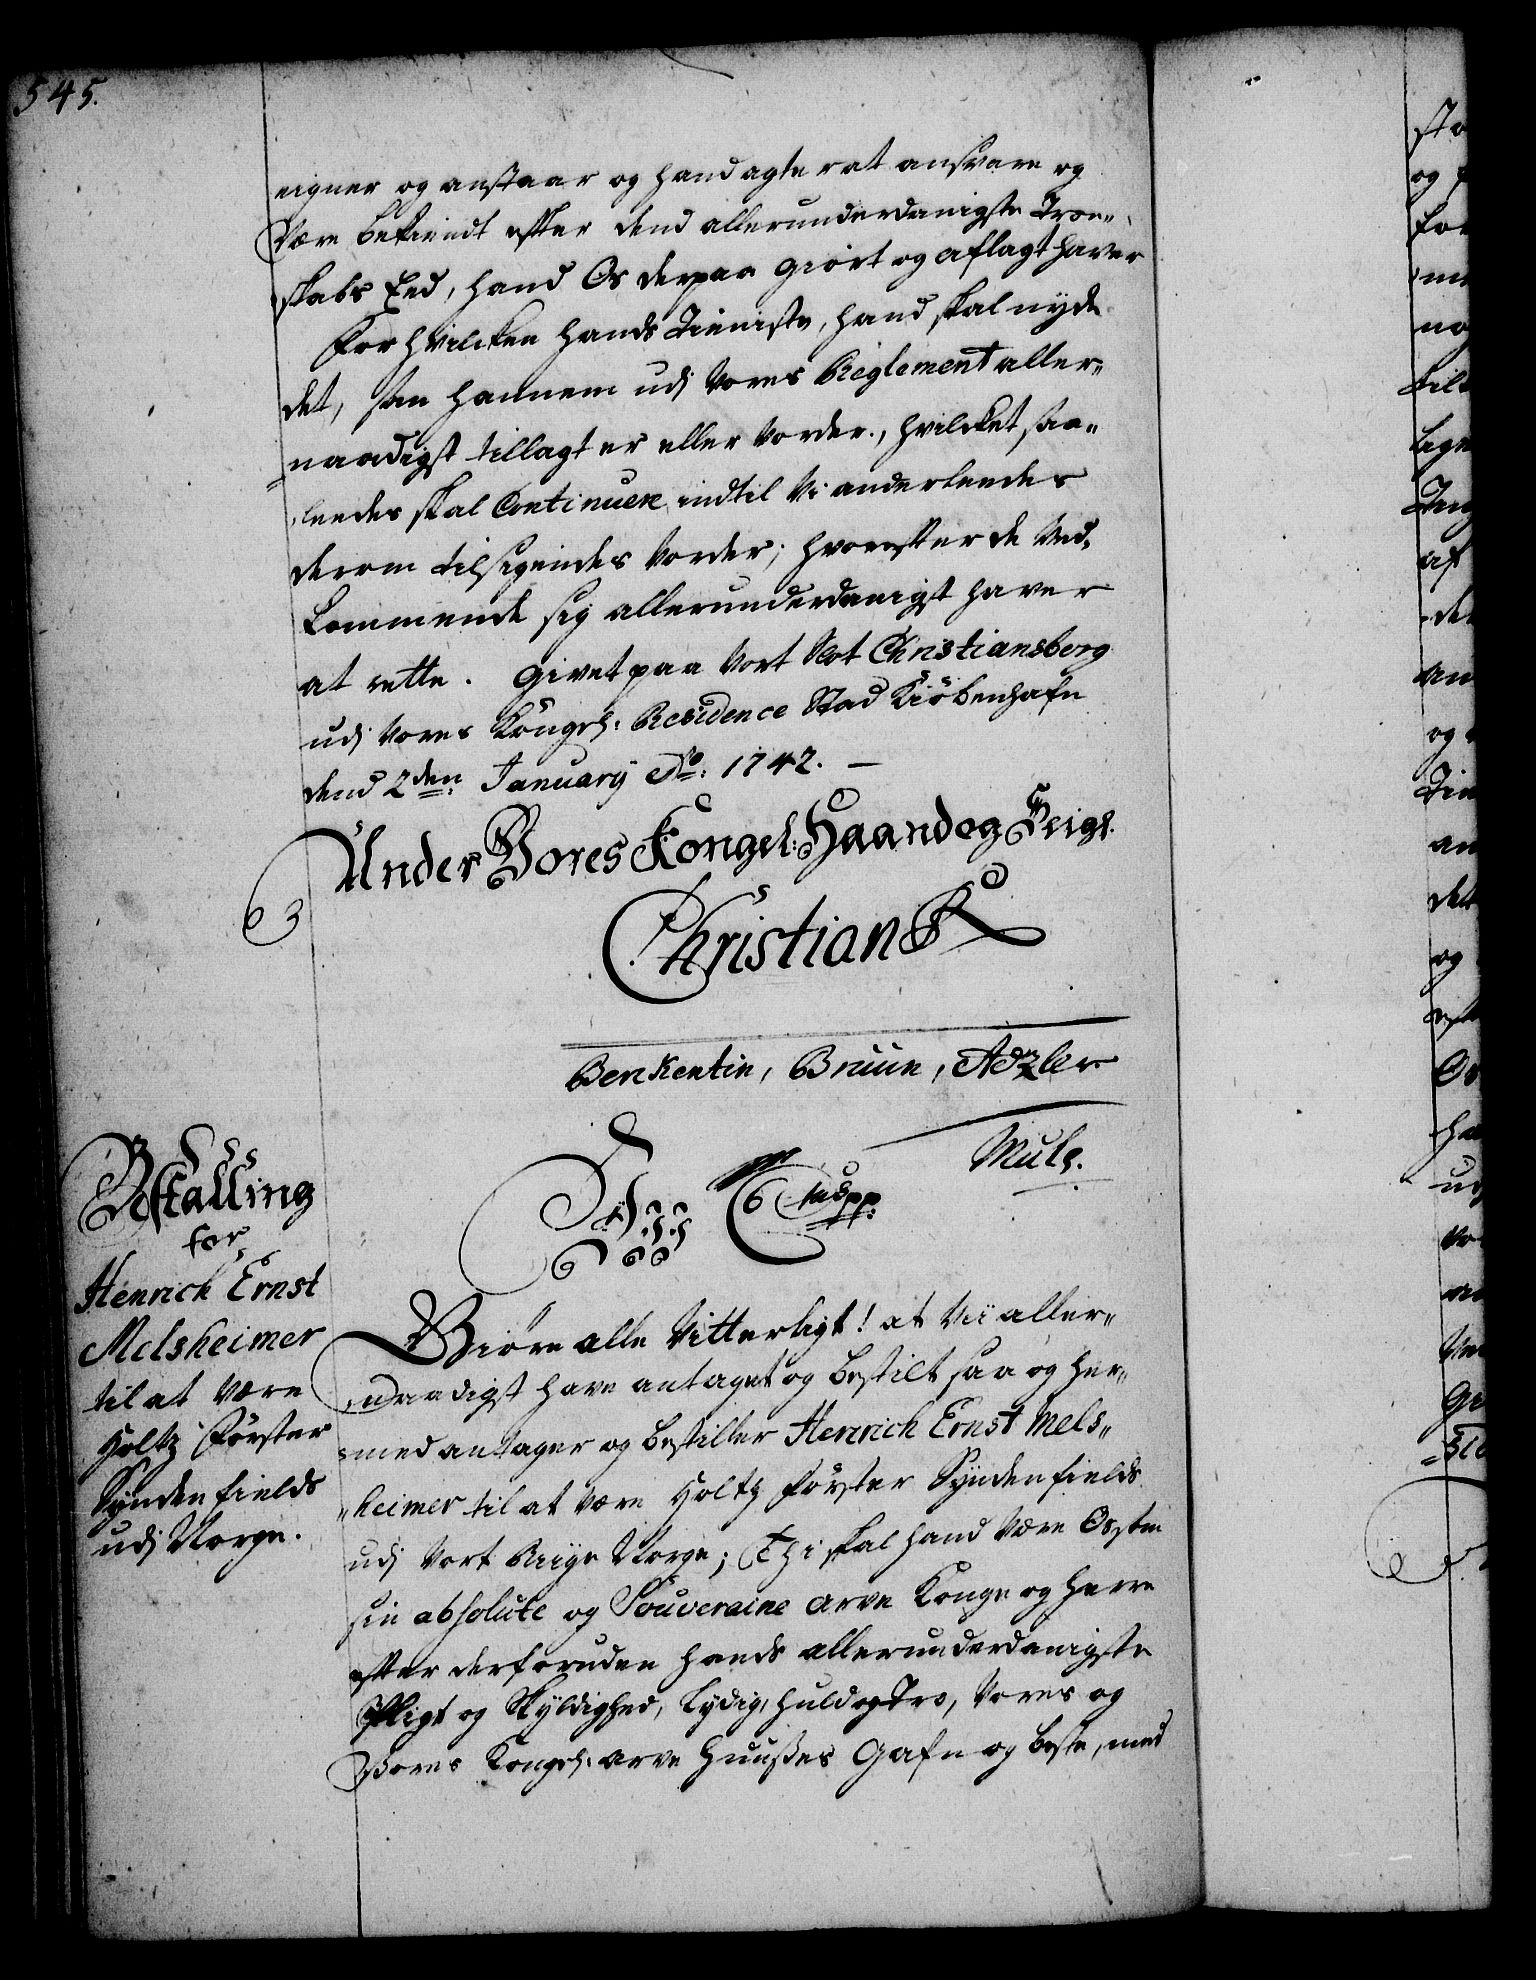 545.
eigner og anstaar og hand agter at ansvare og
Være bekiendt efter dend allerunderdanigste Troe„
skabs Eed, hand Os derpaa giort og aflagt haver
For hvilcken hands Tieniste, hand skal nyde
det, som hannem udj Vores Reglement aller„
naadigst tillagt er eller Vorder., hvilcket saa„
leedes skal Continuere indtil Vi anderleedes
derom tilsigendes Vorder; hvorefter de Ved„
kommende sig allerunderdanigst haver
at rette. Givet paa Vort Slot Christiansborg
udj Vores Kongel: Residence Stad Kiöbenhafn
dend 2den January Ao: 1742. —
Under Vores Kongel: Haand og Seigl.
Christian R
Berkentin, Bruun, Adzler
Mule.
Bestalling
for
Henrich Ernst
Melsheimer
til at Være
Holtz Förster
Syndenfields
udj Norge.
Giöre alle Vitterligt! at Vii aller„
naadigst have antaget og bestilt saa og her„
med antager og bestiller Henrich Ernst Mels„
„heimer til at være Holtz förster Syndenfields
udj Vort Riige Norge; Thi skal hand Være Os som
sin absolute og Souveraine arve Konge og Herre
efter derforuden hands allerunderdanigste
Pligt og Skyldighed, lydig, huld og Tro, Vores og
Vores Kongel: arve Huuses Gafn og beste, med